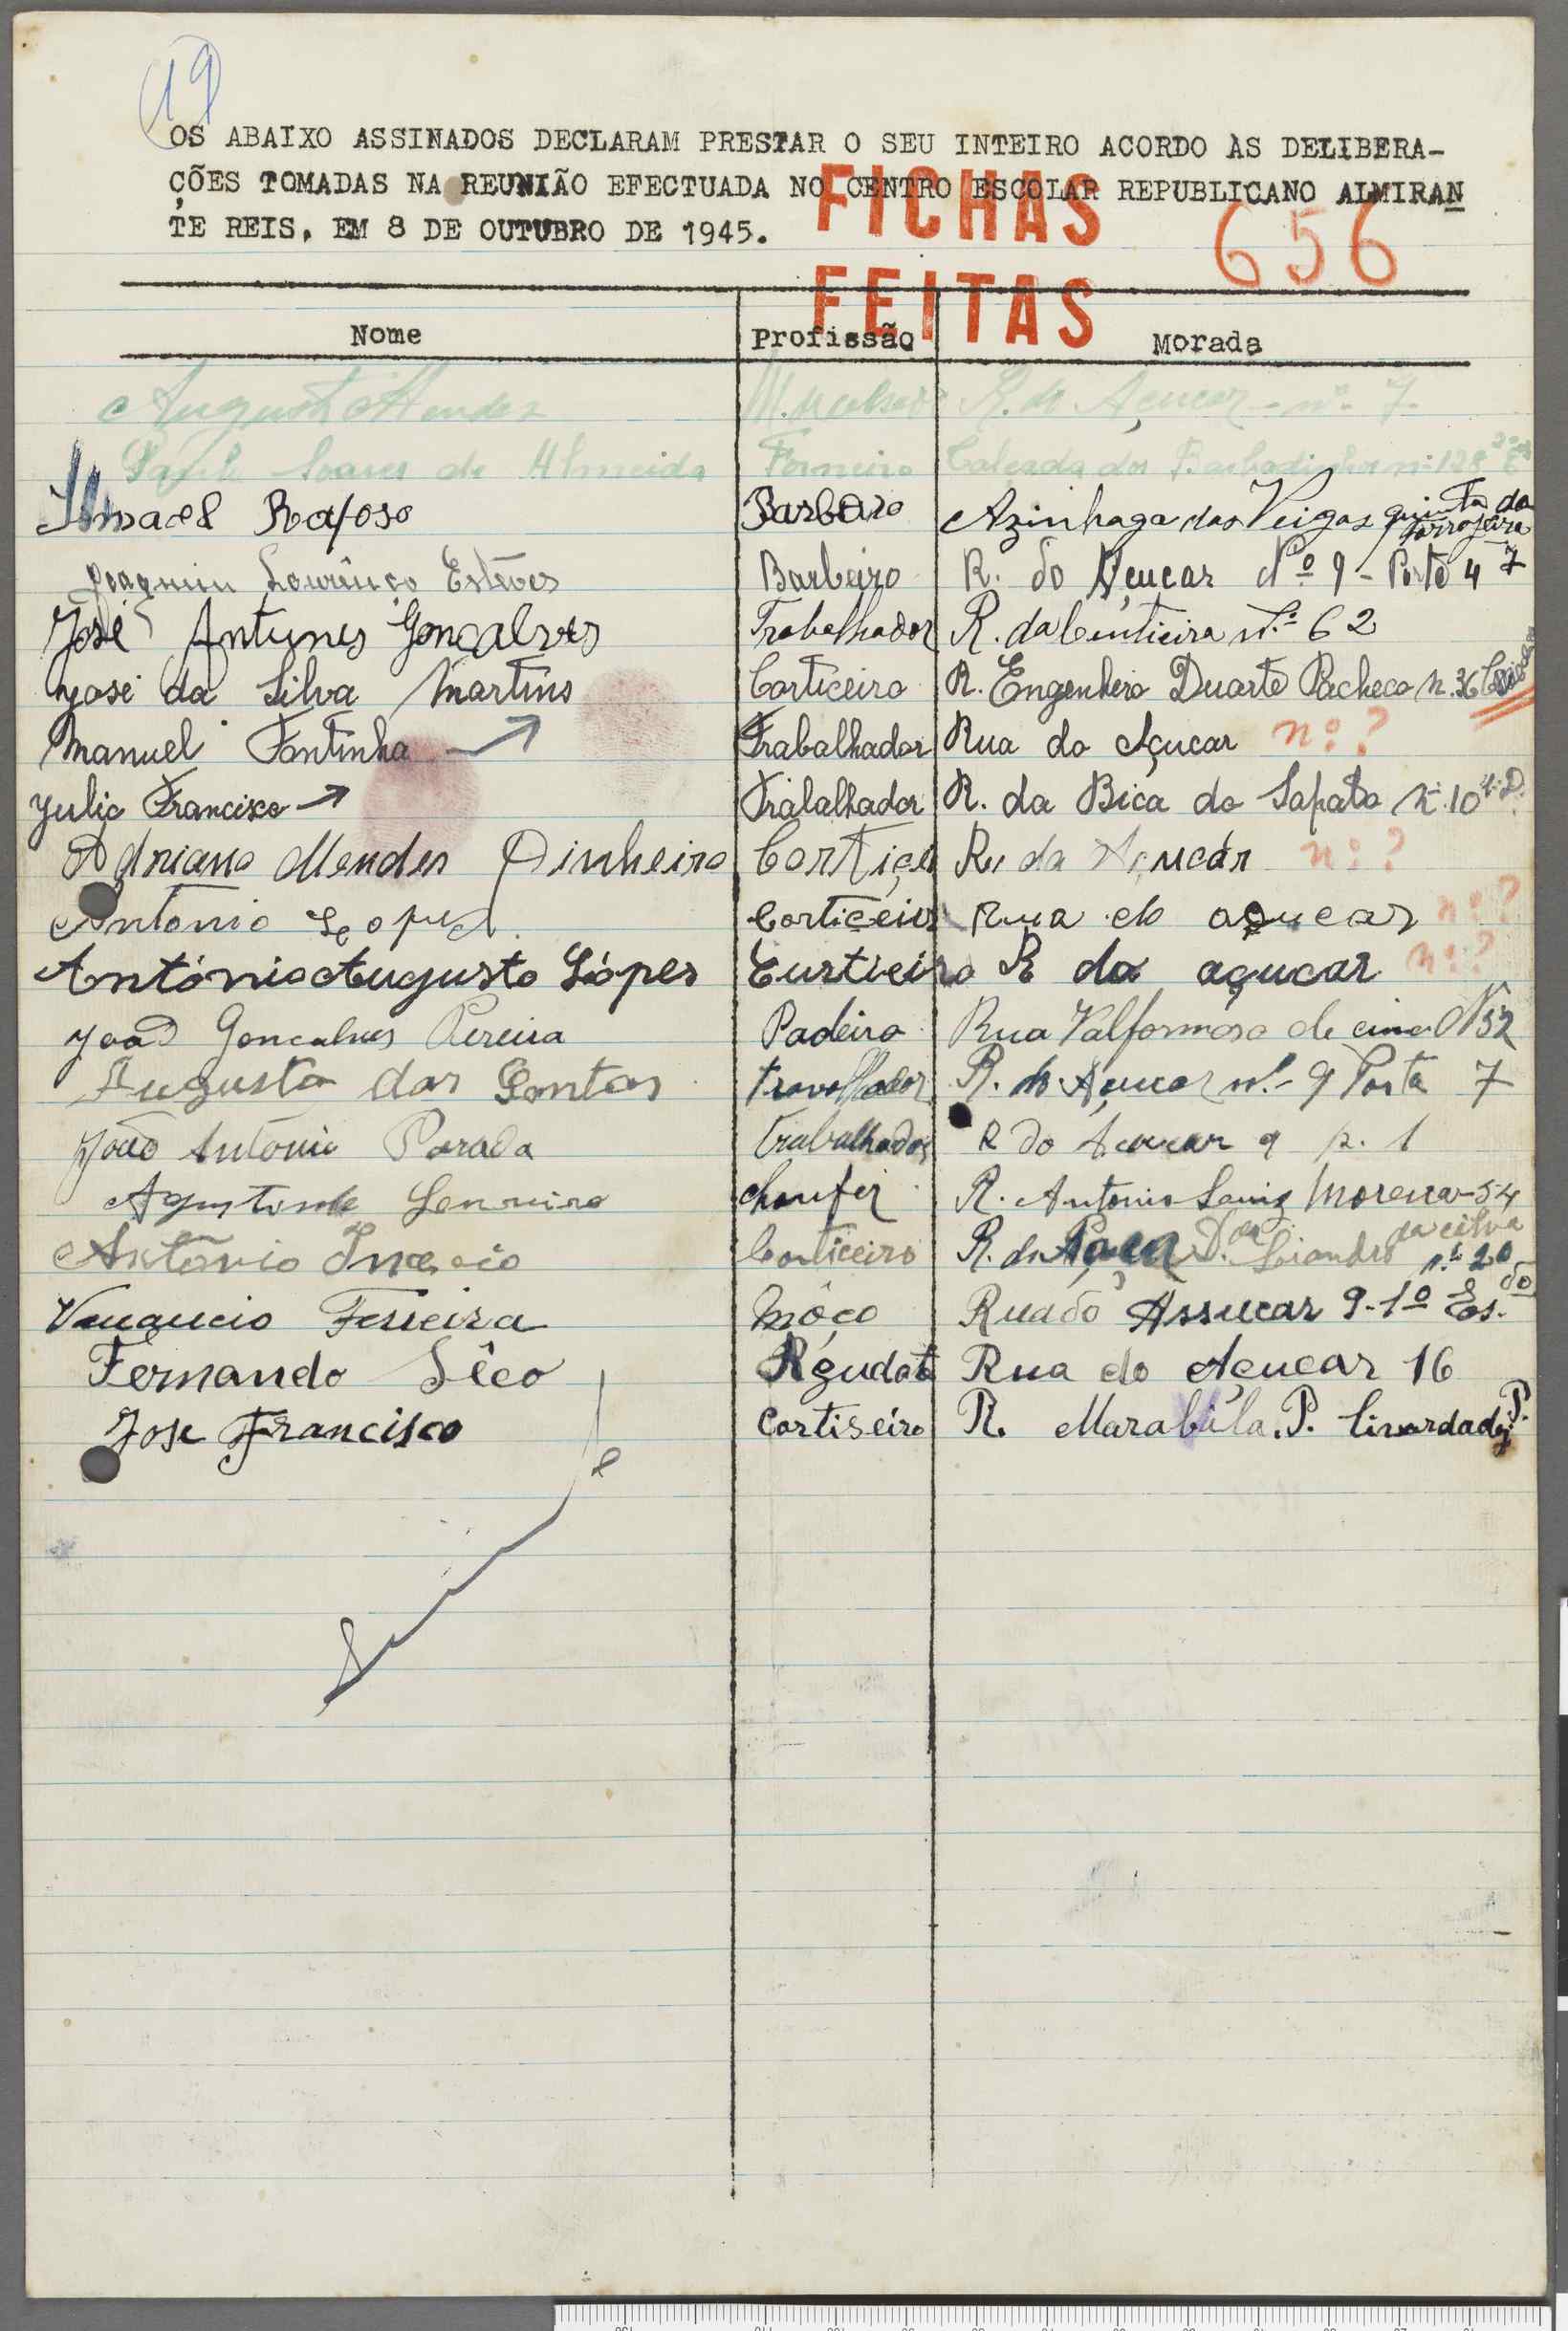 19
OS ABAIXO ASSINADOS DECLARAM PRESTAR O SEU INTEIRO ACORDO ÀS DELIBERA-
ÇÕES TOMADAS NA REUNIÃO EFECTUADA NO CENTRO ESCOLAR REPUBLICANO ALMIRAN
TE REIS, EM 8 DE OUTUBRO DE 1945.
FICHAS
FEITAS
656
Nome Profissão Morada
Augusto Mendes R. do Açucar - nº 7
Soares de Almeida Forneiro Calçada dos Barbadinhos nº 128 2º E
Ismael Raposo Barbeiro Azinhaga das Veigas quinta da
Joaquim Lourênço Estêves Barbeiro R. do Açucar Nº 9 - Porta 4 7
José Antunes Gonçalves Trabalhador R. da Centieira nº 62
José da Silva Martins Corticeiro R. Engenheiro Duarte Pacheco n. 36
Manuel Fontinha Trabalhador Rua do Açucar nº ?
Julio Francisco Trabalhador R. da Bica do Sapato nº 10
Adriano Mendes Pinheiro Cortiçei R. da Açucár nº ?
Antonio Lopes Corticeiro Rua do açucar nº ?
António Augusto Lópes Curtieiro R da açucar nº ?
João Goncalves Pereira Padeiro Rua Valformoso de cima N 52
Augusto dos Santos R. do Açucar nº 9 Porta 7
João Antonio Parada Trabalhador R do Açucar 9 p. 1
choufer R. Antonio Luiz Moreira - 54
António Inacio Corticeiro R. da Liandro da cilva nº 20
Venancio Ferreira Môço Rua do Assucar 9-1º Es.do
Fernando Sêco Rua do Açucar 16
Jose Francisco Cortiseiro R. Marabila. P.